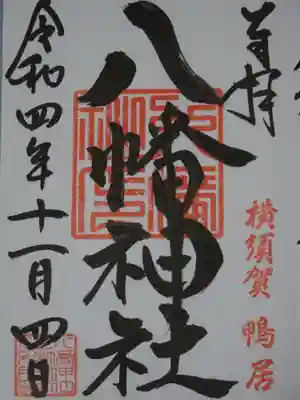 奉拝
横須賀 鴨居
八幡神社
令和四年十一月四日